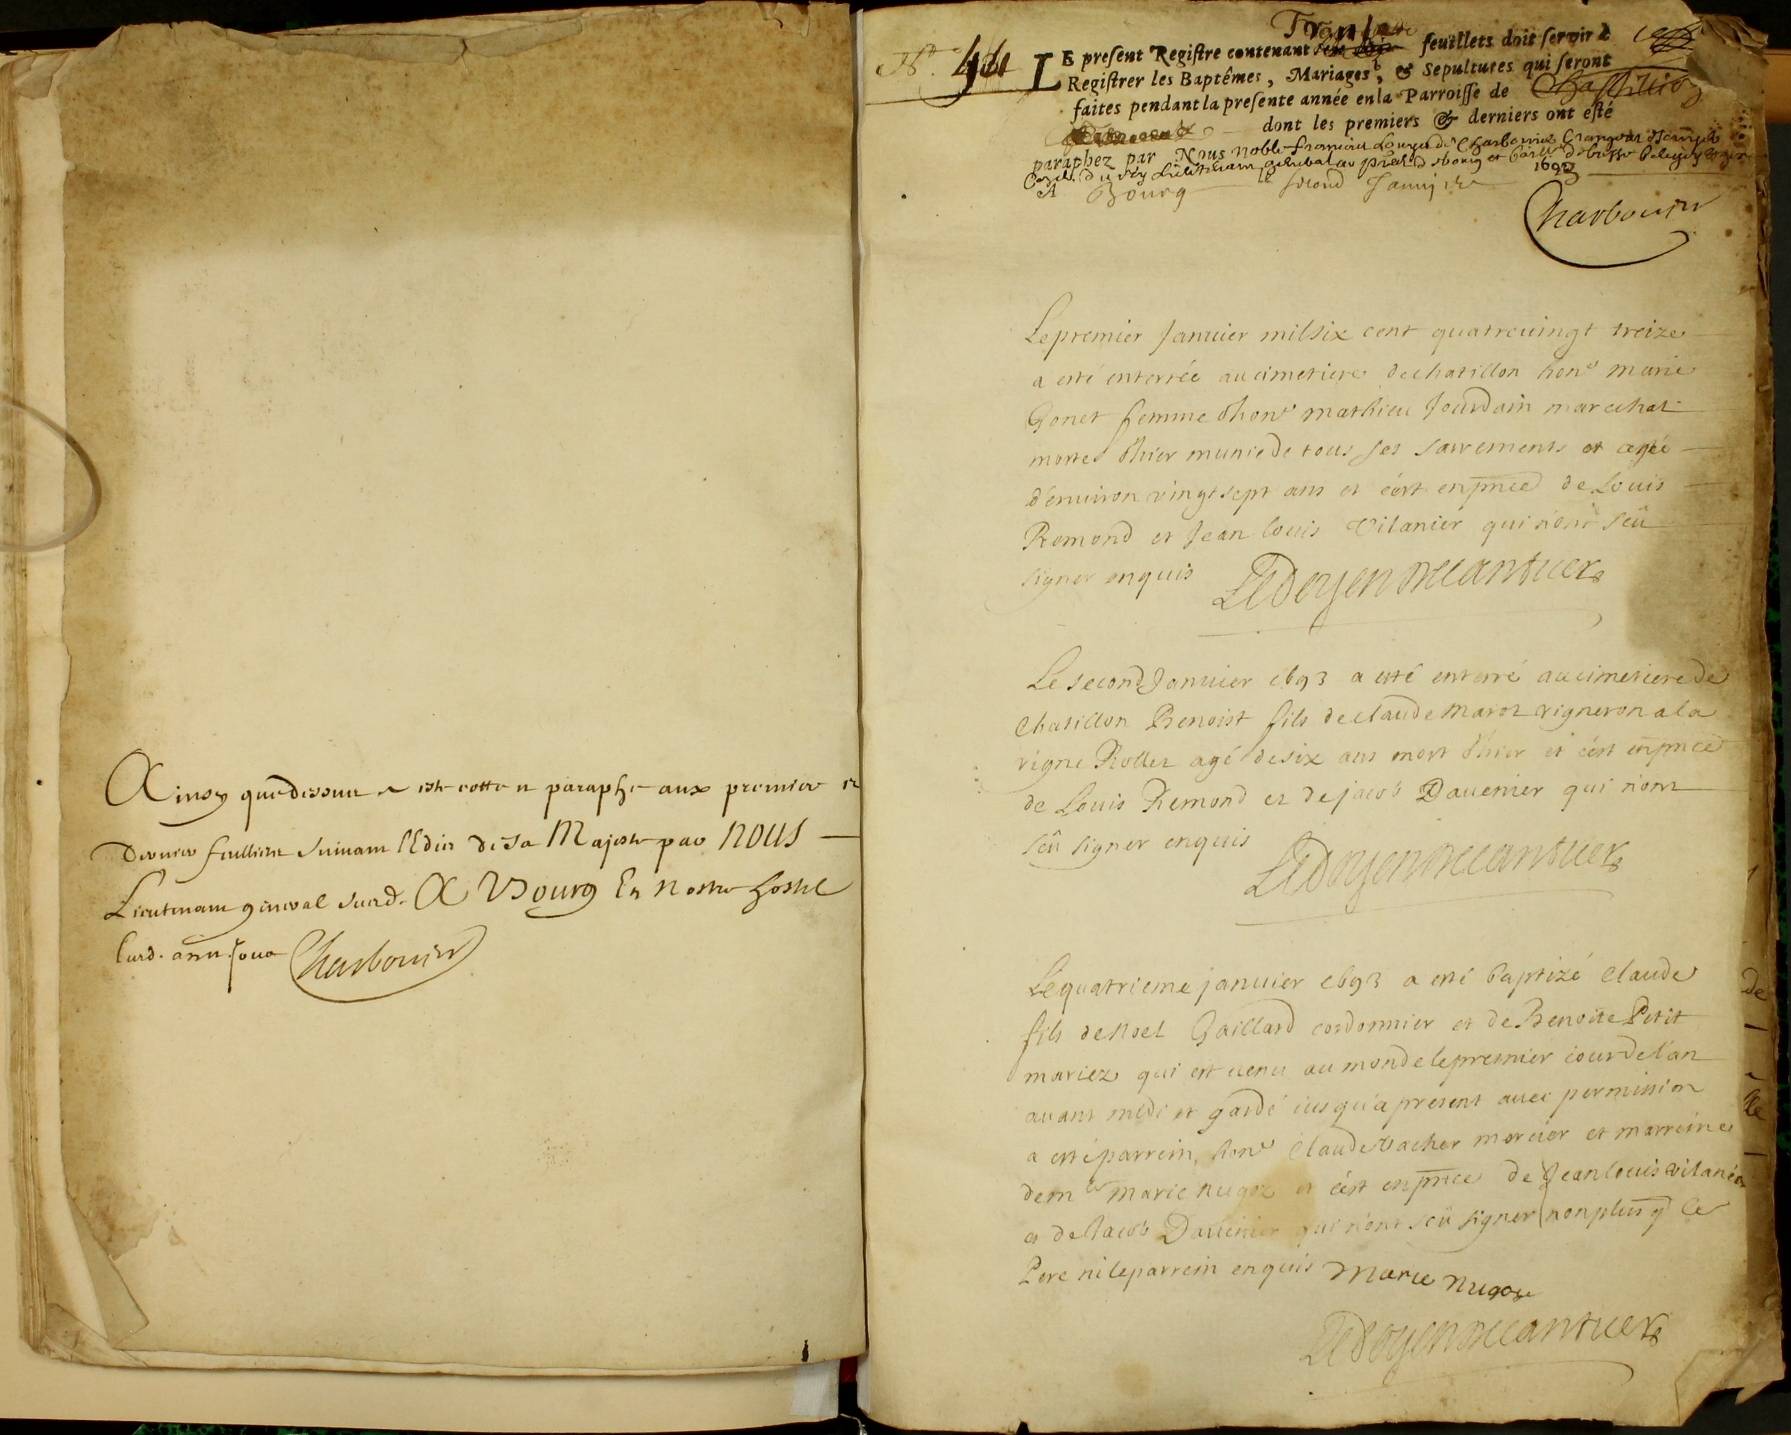 Ainsy que dessus a este cotte et paraphe aux premier et
Dernier feullietz suivant l'Edit de sa Majeste par NOUS
Lieutenant general susd. A Bourg En nostre hostel
lesd. an et jour Charbonier
Trente
LE present Registre contenant feuillets doit servir à
Registrer les Baptêmes, Mariages, & Sepultures qui seront
faites pendant la presente année en la Parroisse de Chastillion
dont les premiers & derniers ont esté
paraphez par Nous noble François Charbonier
A Bourg le second Janvier 1693
Charbonier
Le premier Januier mil six cent quatreuingt treize
a esté enterrée au cimetiere de chatillon hon^e marie
Gonet femme d'hon^e mathieu Jourdain marechal
morte d'hier munie de tous ses sacrements et agée
d'enuiron vingt sept ans et c'est en pnce de Louis
Remond et Jean louis Vilanier qui n'ont sçû
signer enquis Ledoyen Decantuer
Le second Januier 1693 a esté enterré au cimetiere de
Chatillon Benoist fils de claude maroz vigneron a la
vigne Rollet agé de six ans mort d'hier et c'est en pnce
de Louis Remond et de jacob Dauenier qui n'ont
sçû signer enquis Ledoyen Decantuer
Le quatrieme januier 1693 a esté baptizé claude
fils de Noel Gaillard cordonnier et de Benoite Petit
mariez qui est uenu au monde le premier iour de l'an
auant midi et gardé iusqu'a present auec permission
a esté parrein hon^e Claude Vacher mercier et marreine
dem^le Marie nugoz et c'est en pnce de Jean louis vilanier
et de Jacob Dauenier qui n'ont sçû signer non plus q le
Pere ni le parrein enquis Marie nugoz
Ledoyen Decantuer